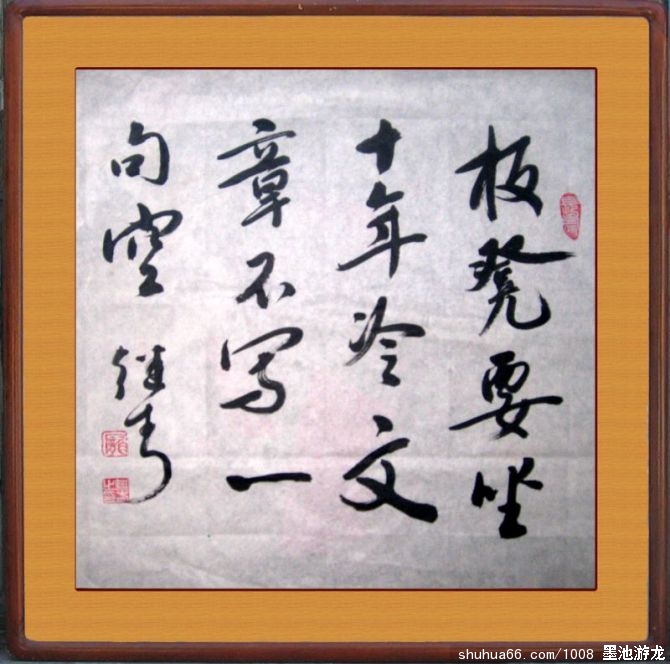 板凳要坐
十年冷文
章不写一
句空 继青
shuhua66.com/1008 墨池游龙